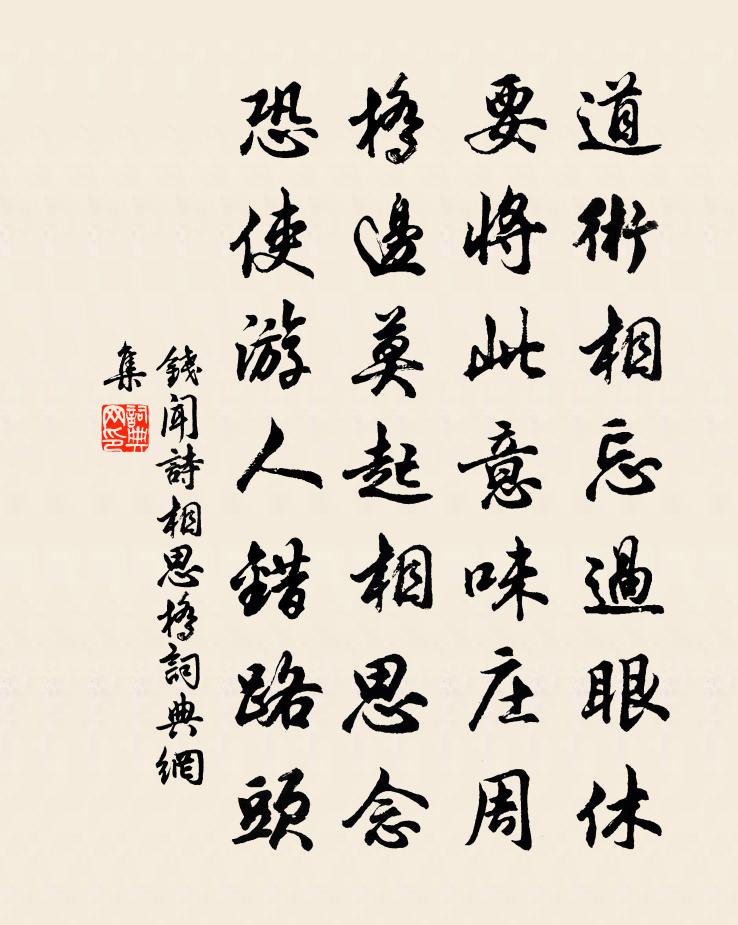 道術相忘過眼休
要將此意味庄周
橋邊莫起相思念
恐使游人錯路頭
錢聞詩相思橋詞典網
集
詞典网印